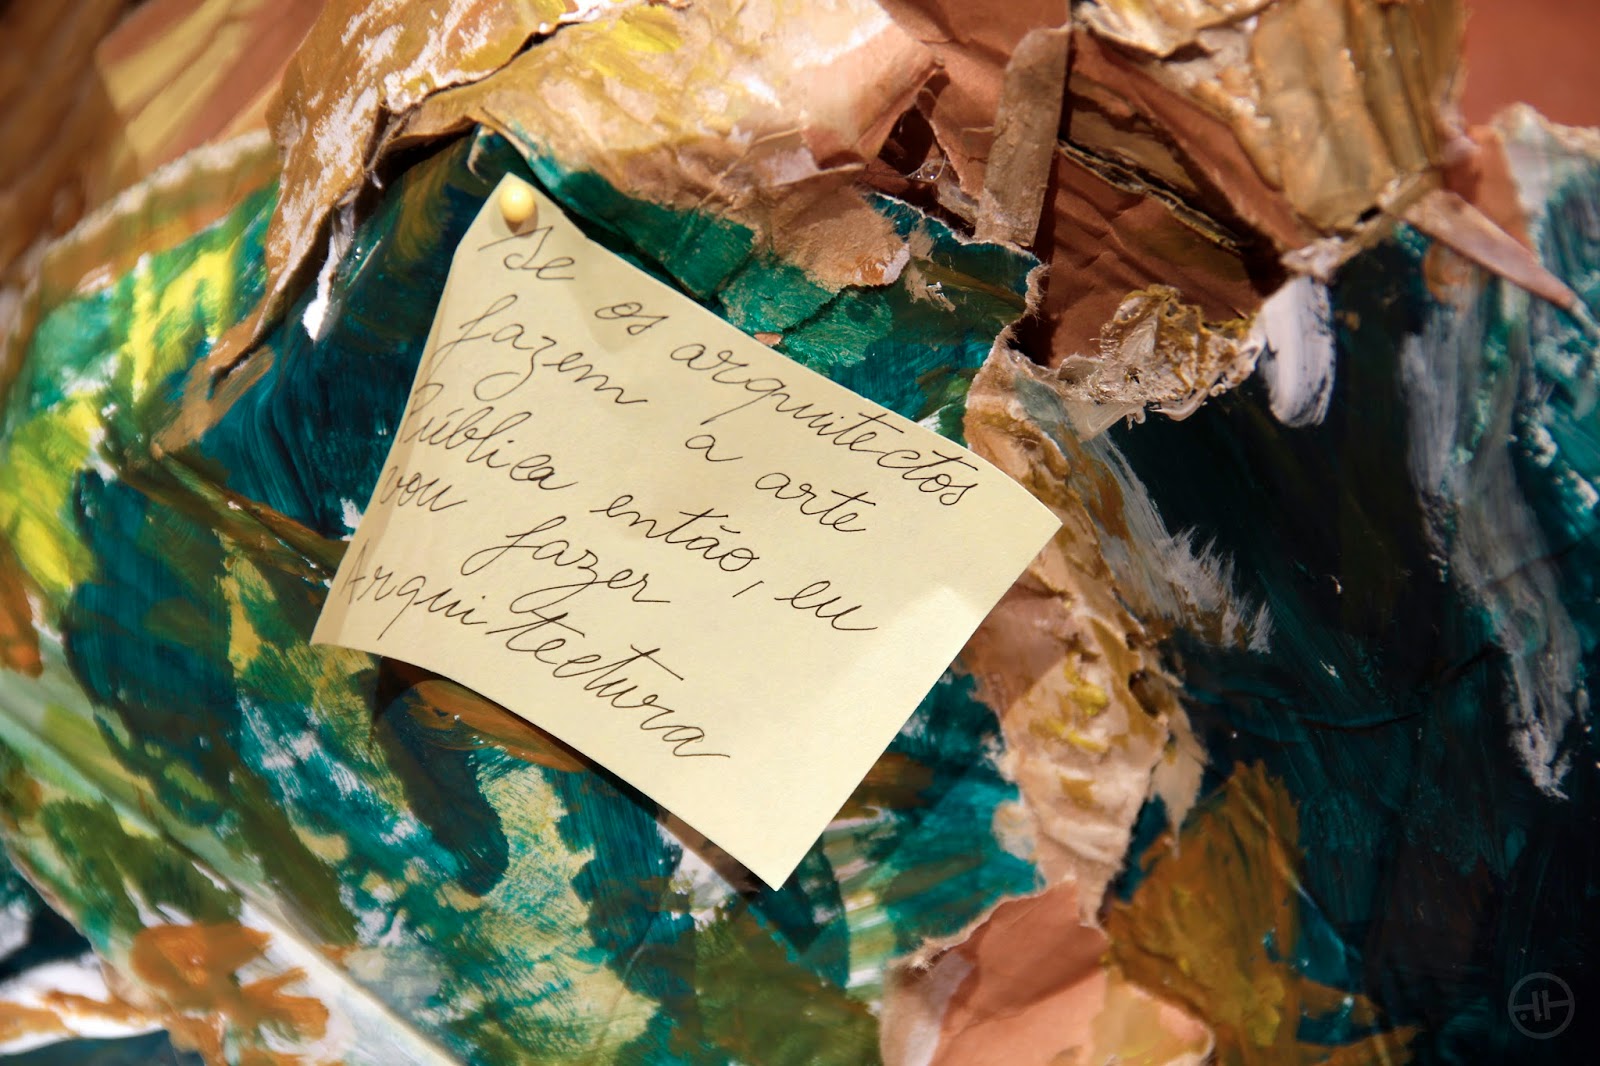 Se os arquitectos
fazem a arte
Pública então, eu
vou fazer
Arquitectura